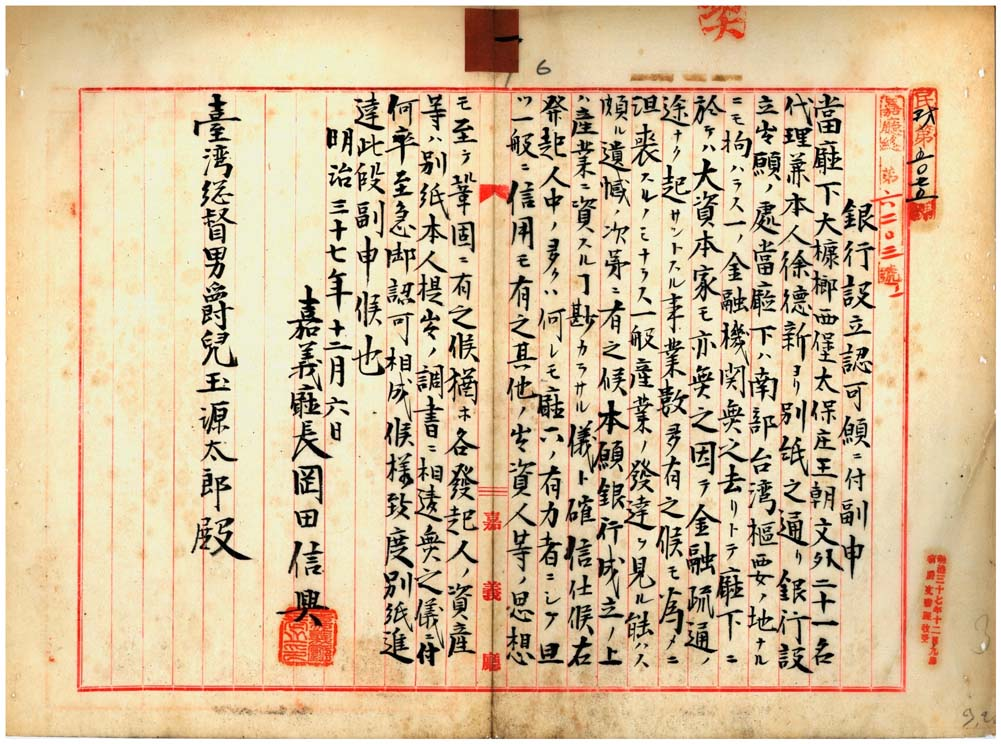 一
6
民政第五〇七五號
嘉廳總第六二〇三號ノ一
銀行設立認可願ニ付副申
當廳下大槺榔西堡太保庄王朝文外二十一名
代理兼本人徐德新ヨリ別紙之通リ銀行設
立出願ノ處當廳下ハ南部台湾樞要ノ地ナル
ニモ拘ハラス一ノ金融機関無之去リトテ廳下ニ
於テハ大資本家モ亦無之因テ金融疏通ノ
途ナク起サントスル事業數多有之候モ為メニ
沮喪スルノミナラス一般産業ノ發達ヲ見ル能ハス
頗ル遺憾ノ次第ニ有之候本願銀行成立ノ上
ハ産業ニ資スルヿ尠カラサル儀ト確信仕候右
發起人中ノ多クハ何レモ廳下ノ有力者ニシテ且
ツ一般ニ信用モ有之其他ノ出資人等ノ思想
モ至テ鞏固ニ有之候猶ホ各發起人ノ資産
等ハ別紙本人提出ノ調書ニ相違無之儀ニ付
何卒至急御認可相成候様致度別紙進
達此段副申候也
明治三十七年十二月六日
嘉義廳長岡田信興
臺湾総督男爵兒玉源太郎殿
嘉義廳
明治三十七年十二月九日